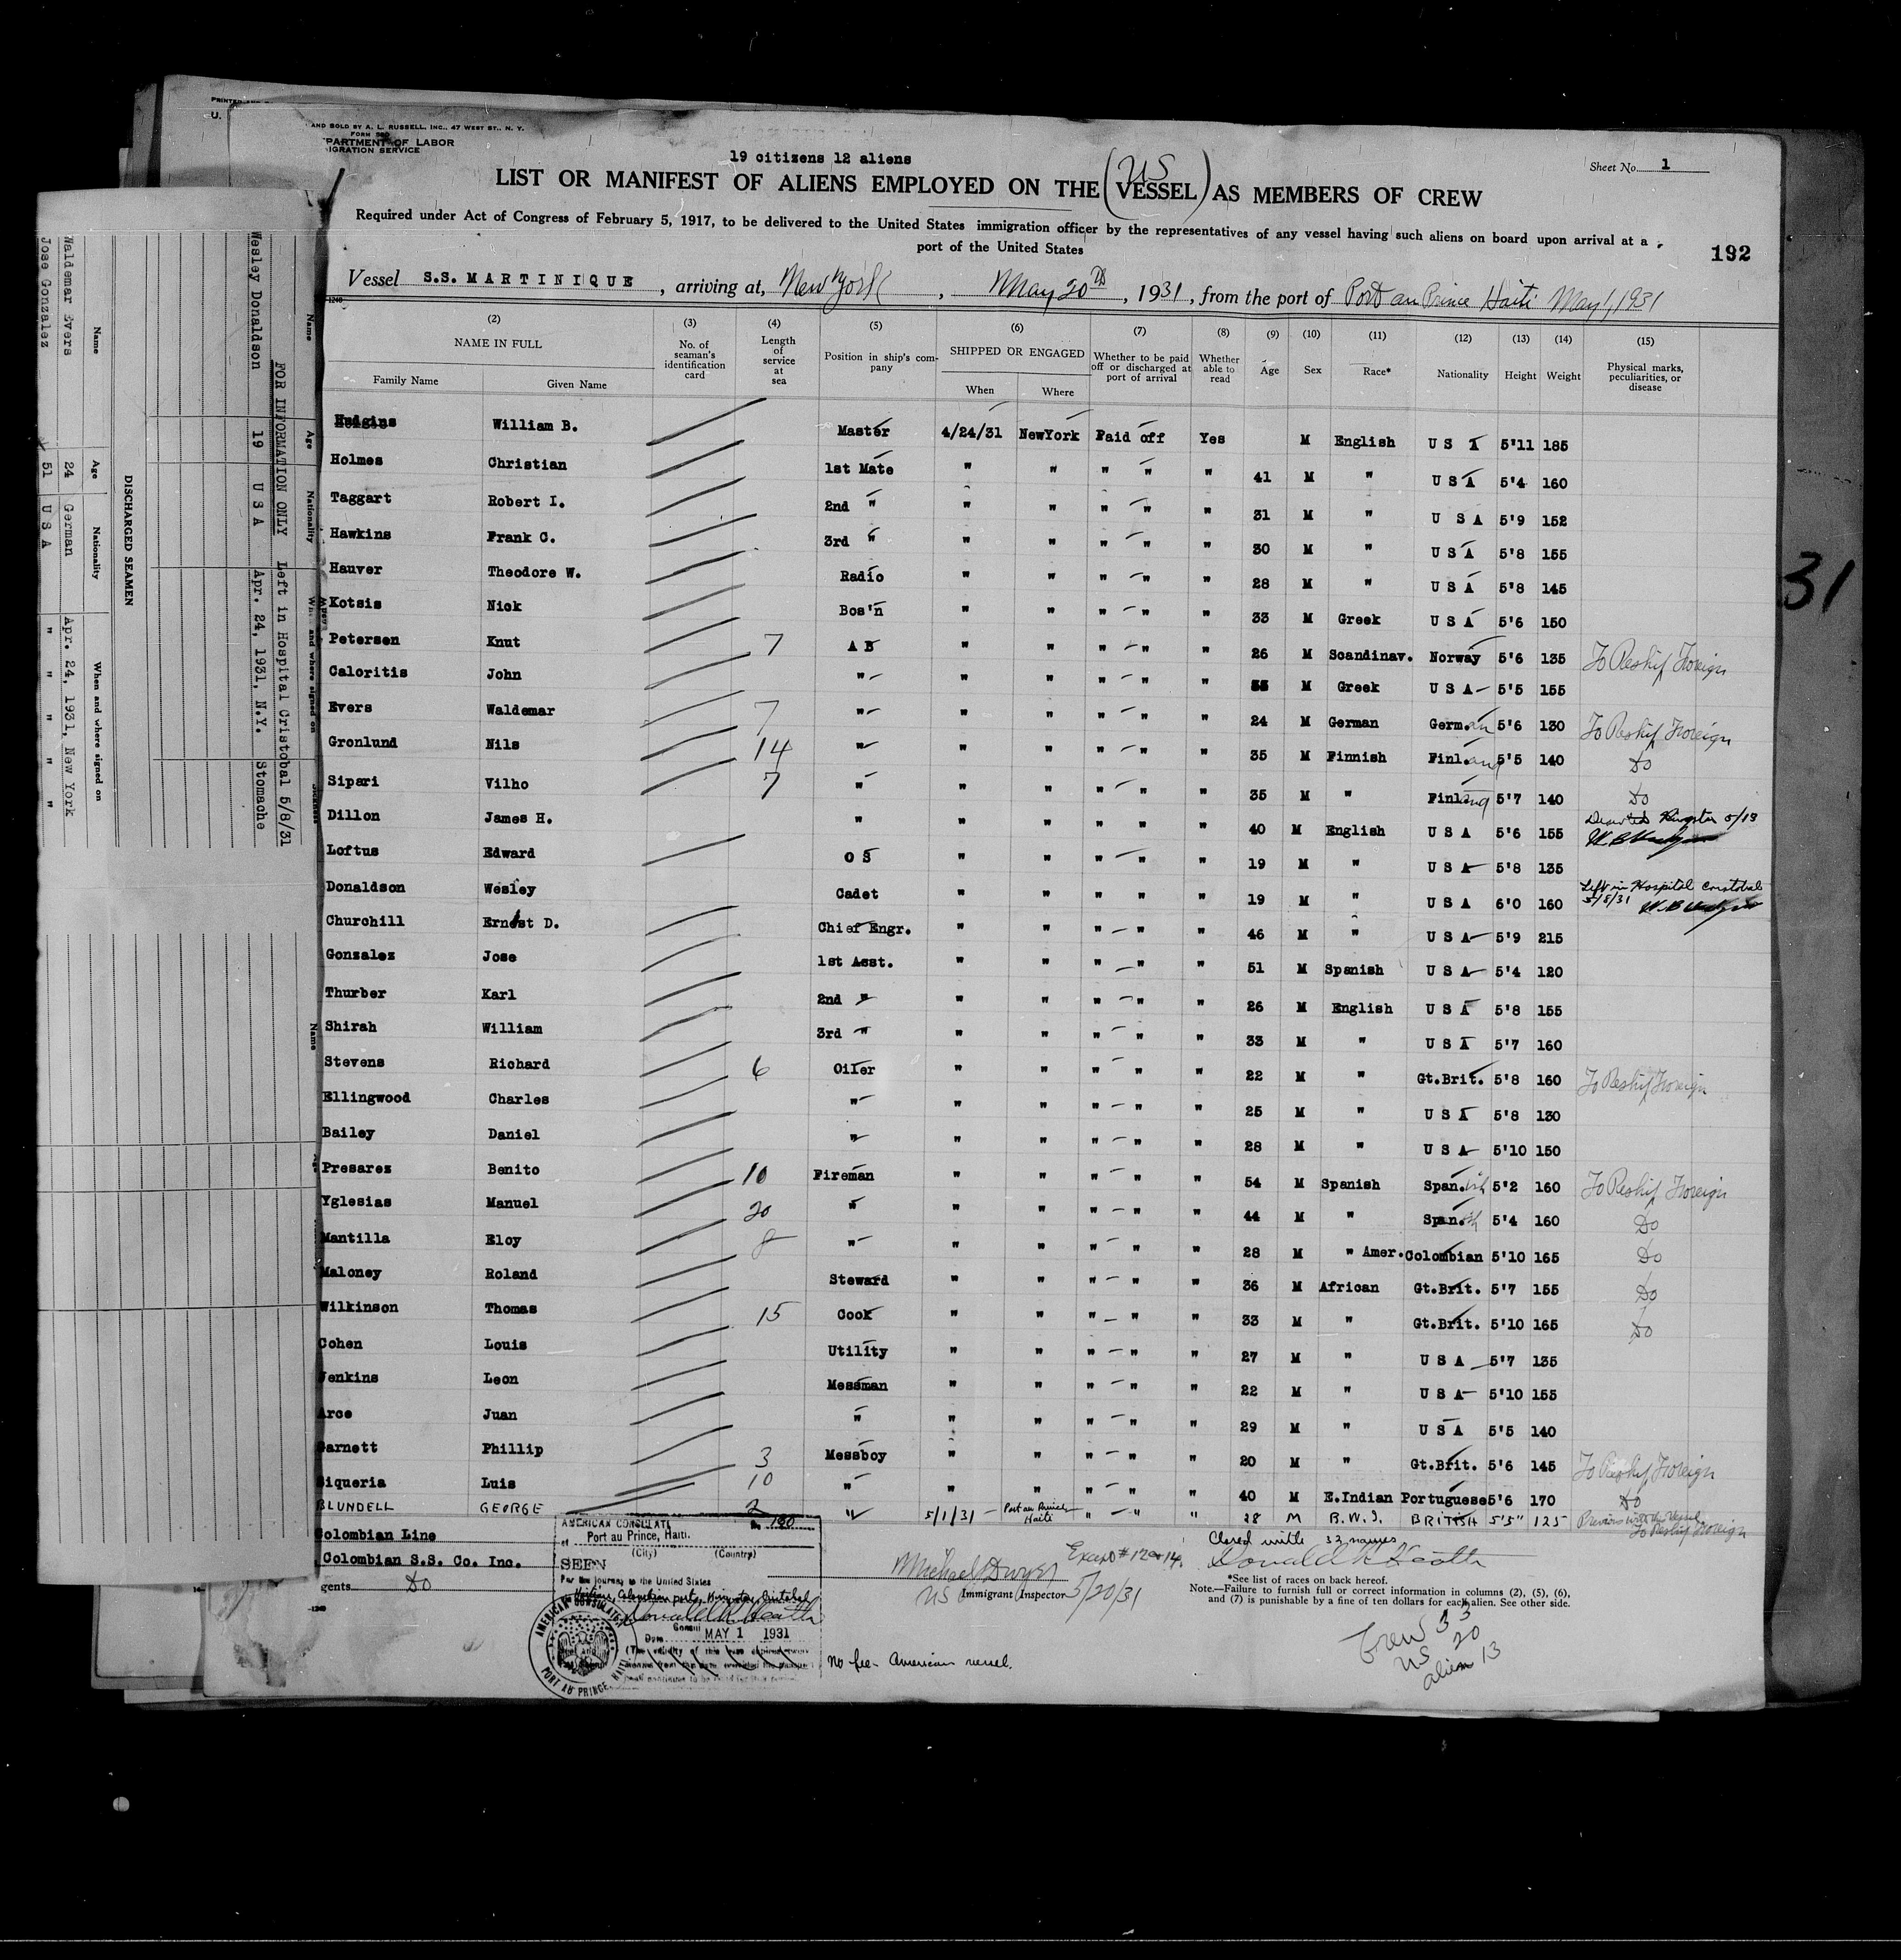 PRINTED AND
U.
AND SOLD BY A. L. RUSSELL, INC., 47 WEST ST., N. Y.
FORM 680
PARTMENT OF LABOR
IGRATION SERVICE
19 citizens 12 aliens
Sheet No. 1
US
LIST OR MANIFEST OF ALIENS EMPLOYED ON THE (VESSEL) AS MEMBERS OF CREW
Required under Act of Congress of February 5, 1917, to be delivered to the United States immigration officer by the representatives of any vessel having such aliens on board upon arrival at a
port of the United States
192
Vessel S.S. MARTINIQUE, arriving at, New York, May 20th, 1931, from the port of Port au Prince Haiti May 1, 1931
1240
(2) (3) (4) (5) (6) (7) (8) (9) (10) (11) (12) (13) (14) (15)
NAME IN FULL No. of seaman's identification card Length of service at sea Position in ship's company SHIPPED OR ENGAGED Whether to be paid off or discharged at port of arrival Whether able to read Age Sex Race* Nationality Height Weight Physical marks, peculiarities, or disease
Family Name Given Name When Where
Hudgins William B. Master 4/24/31 NewYork Paid off Yes M English U S A 5'11 185
Holmes Christian 1st Mate " " " " " 41 M " U S A 5'4 160
Taggart Robert I. 2nd " " " " " " 31 M " U S A 5'9 152
Hawkins Frank C. 3rd " " " " " " 30 M " U S A 5'8 155
Hauver Theodore W. Radio " " " " " 28 M " U S A 5'8 145
Kotsis Nick Bos'n " " " " " 33 M Greek U S A 5'6 150
Petersen Knut 7 A B " " " " " 26 M Scandinav. Norway 5'6 135 To Reship Foreign
Caloritis John " " " " " " M Greek U S A 5'5 155
Evers Waldemar 7 " " " " " " 24 M German German 5'6 130 To Reship Foreign
Gronlund Nils 14 " " " " " " 35 M Finnish Finland 5'5 140 Do
Sipari Vilho 7 " " " " " " 35 M " Finland 5'7 140 Do
Dillon James H. " " " " " " 40 M English U S A 5'6 155 Deserted Kingston 5/13
Loftus Edward O S " " " " " 19 M " U S A 5'8 135
Donaldson Wesley Cadet " " " " " 19 M " U S A 6'0 160 Left in Hospital Cristobal 5/8/31
Churchill Ernest D. Chief Engr. " " " " " 46 M " U S A 5'9 215
Gonzalez Jose 1st Asst. " " " " " 51 M Spanish U S A 5'4 120
Thurber Karl 2nd " " " " " " 26 M English U S A 5'8 155
Shirah William 3rd " " " " " " 33 M " U S A 5'7 160
Stevens Richard 6 Oiler " " " " " 22 M " Gt.Brit. 5'8 160 To Reship Foreign
Ellingwood Charles " " " " " " 25 M " U S A 5'8 130
Bailey Daniel " " " " " " 28 M " U S A 5'10 150
Presares Benito 10 Fireman " " " " " 54 M Spanish Spanish 5'2 160 To Reship Foreign
Yglesias Manuel 20 " " " " " " 44 M " Spanish 5'4 160 Do
Mantilla Eloy 8 " " " " " " 28 M " Amer. Colombian 5'10 165 Do
Maloney Roland Steward " " " " " 36 M African Gt.Brit. 5'7 155 Do
Wilkinson Thomas 15 Cook " " " " " 33 M " Gt.Brit. 5'10 165 Do
Cohen Louis Utility " " " " " 27 M " U S A 5'7 135
Jenkins Leon Messman " " " " " 22 M " U S A 5'10 155
Arce Juan " " " " " " 29 M " U S A 5'5 140
Garnett Phillip 3 Messboy " " " " " 20 M " Gt.Brit. 5'6 145 To Reship Foreign
Siqueria Luis 10 " " " " " " 40 M E.Indian Portuguese 5'6 170 Do
BLUNDELL GEORGE 2 " 5/1/31 Port au Prince Haiti " " " 28 M B.W.I. BRITISH 5'5" 125 To Reship Foreign
Colombian Line
Colombian S.S. Co. Inc.
gents Do
1240
AMERICAN CONSULATE No. 190
of Port au Prince, Haiti.
(City) (Country)
SEEN
For the journey to the United States
Donald R. Heath
Consul
Date MAY 1 1931
AMERICAN CONSULATE
PORT AU PRINCE, HAITI
No fee - American vessel.
Except #12 & 14
Michael J Dwyer
US Immigrant Inspector 5/20/31
Closed with 32 names
Donald R. Heath
*See list of races on back hereof.
Note.—Failure to furnish full or correct information in columns (2), (5), (6),
and (7) is punishable by a fine of ten dollars for each alien. See other side.
Crew 33
US 20
alien 13
31
FOR INFORMATION ONLY Left in Hospital Cristobal 5/8/31
Name Age Nationality When and where signed on
Wesley Donaldson 19 U S A Apr. 24, 1931, N.Y. Stomache
DISCHARGED SEAMEN
Name Age Nationality When and where signed on
Waldemar Evers 24 German Apr. 24, 1931, New York
Jose Gonzalez 51 U S A " " " "
Name